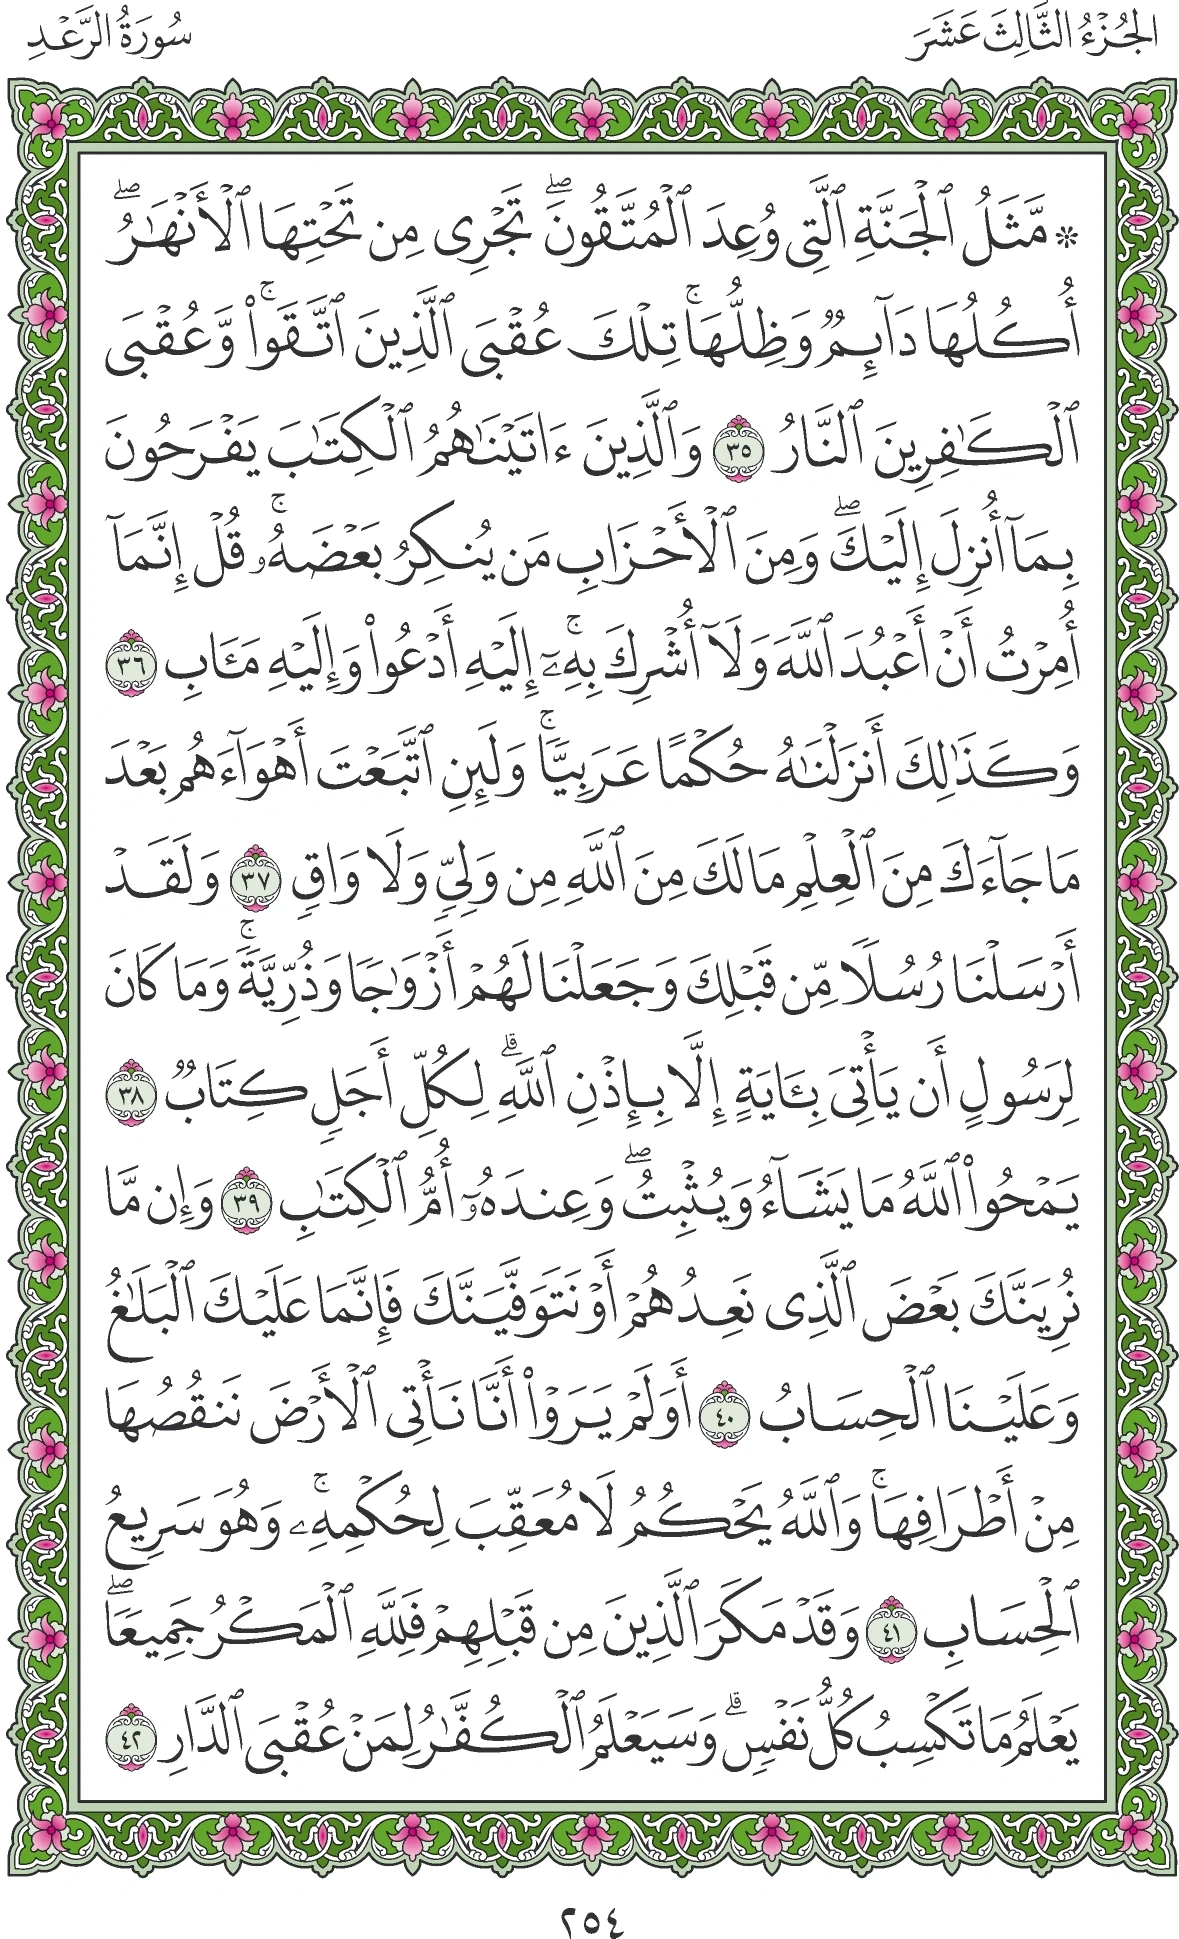 الجُزْءُ الثَّالِثَ عَشَرَ
سُورَةُ الرَّعْدِ
۞ مَّثَلُ ٱلْجَنَّةِ ٱلَّتِى وُعِدَ ٱلْمُتَّقُونَۖ تَجْرِى مِن تَحْتِهَا ٱلْأَنْهَٰرُۖ
أُكُلُهَا دَآئِمٌ وَظِلُّهَاۚ تِلْكَ عُقْبَى ٱلَّذِينَ ٱتَّقَوا۟ۚ وَّعُقْبَى
ٱلْكَٰفِرِينَ ٱلنَّارُ ٣٥ وَٱلَّذِينَ ءَاتَيْنَٰهُمُ ٱلْكِتَٰبَ يَفْرَحُونَ
بِمَآ أُنزِلَ إِلَيْكَۖ وَمِنَ ٱلْأَحْزَابِ مَن يُنكِرُ بَعْضَهُۥۚ قُلْ إِنَّمَآ
أُمِرْتُ أَنْ أَعْبُدَ ٱللَّهَ وَلَآ أُشْرِكَ بِهِۦٓۚ إِلَيْهِ أَدْعُوا۟ وَإِلَيْهِ مَـَٔابِ ٣٦
وَكَذَٰلِكَ أَنزَلْنَٰهُ حُكْمًا عَرَبِيًّاۚ وَلَئِنِ ٱتَّبَعْتَ أَهْوَآءَهُم بَعْدَ
مَا جَآءَكَ مِنَ ٱلْعِلْمِ مَا لَكَ مِنَ ٱللَّهِ مِن وَلِىٍّ وَلَا وَاقٍ ٣٧ وَلَقَدْ
أَرْسَلْنَا رُسُلًا مِّن قَبْلِكَ وَجَعَلْنَا لَهُمْ أَزْوَٰجًا وَذُرِّيَّةًۚ وَمَا كَانَ
لِرَسُولٍ أَن يَأْتِىَ بِـَٔايَةٍ إِلَّا بِإِذْنِ ٱللَّهِۗ لِكُلِّ أَجَلٍ كِتَابٌ ٣٨
يَمْحُوا۟ ٱللَّهُ مَا يَشَآءُ وَيُثْبِتُۖ وَعِندَهُۥٓ أُمُّ ٱلْكِتَٰبِ ٣٩ وَإِن مَّا
نُرِيَنَّكَ بَعْضَ ٱلَّذِى نَعِدُهُمْ أَوْ نَتَوَفَّيَنَّكَ فَإِنَّمَا عَلَيْكَ ٱلْبَلَٰغُ
وَعَلَيْنَا ٱلْحِسَابُ ٤٠ أَوَلَمْ يَرَوْا۟ أَنَّا نَأْتِى ٱلْأَرْضَ نَنقُصُهَا
مِنْ أَطْرَافِهَاۚ وَٱللَّهُ يَحْكُمُ لَا مُعَقِّبَ لِحُكْمِهِۦۚ وَهُوَ سَرِيعُ
ٱلْحِسَابِ ٤١ وَقَدْ مَكَرَ ٱلَّذِينَ مِن قَبْلِهِمْ فَلِلَّهِ ٱلْمَكْرُ جَمِيعًاۖ
يَعْلَمُ مَا تَكْسِبُ كُلُّ نَفْسٍۗ وَسَيَعْلَمُ ٱلْكُفَّٰرُ لِمَنْ عُقْبَى ٱلدَّارِ ٤٢
٢٥٤